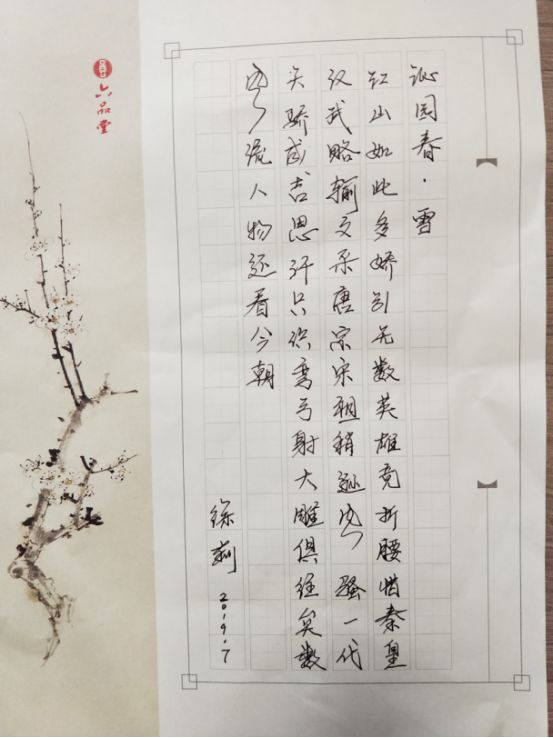 沁园春·雪
江山如此多娇引无数英雄竞折腰惜秦皇
汉武略输文采唐宗宋祖稍逊风骚一代
天骄成吉思汗只识弯弓射大雕俱往矣数
风流人物还看今朝
徐莉 2019.7
六品堂